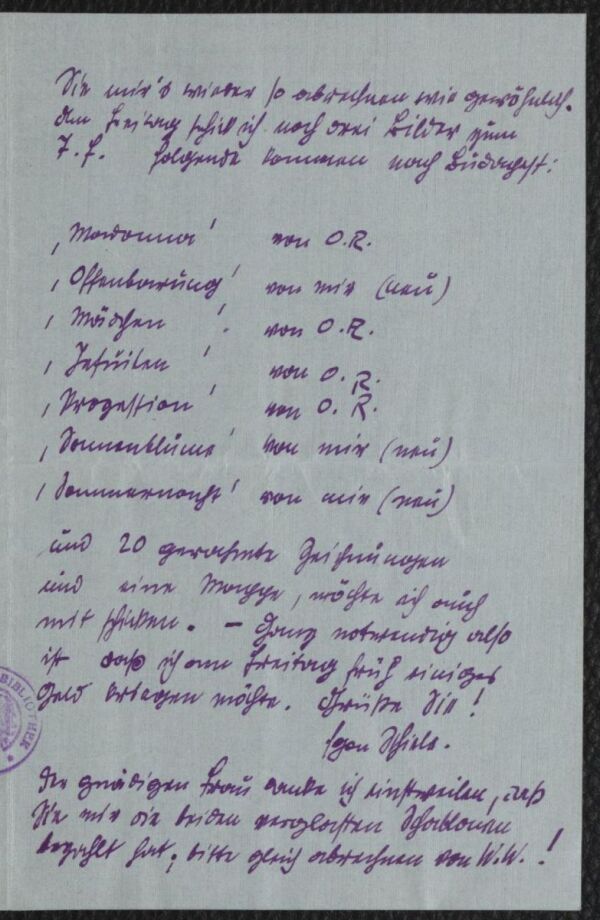 Sie mir's wieder so abrechnen wie gewöhnlich.
Am Freitag schick ich noch drei Bilder zum
folgende kommen nach Budapest:
‚Madonna' von O.R.
‚Offenbarung' von mir (neu)
‚Mädchen' von O.R.
‚Jesuiten' von O.R.
‚Prozession' von O.R.
‚Sonnenblume' von mir (neu)
‚Sommernacht' von mir (neu)
und 20 gerahmte Zeichnungen
und eine Mappe, möchte ich auch
mit schicken. – Ganz notwendig also
ist daß ich am Freitag früh einiges
Geld möchte. Grüße Sie!
Egon Schiele.
Der gnädigen Frau danke ich einstweilen, daß
Sie mir die beiden verglasten Schablonen
bezahlt hat; bitte gleich abrechnen von W.W.!
BIBLIOTHEK